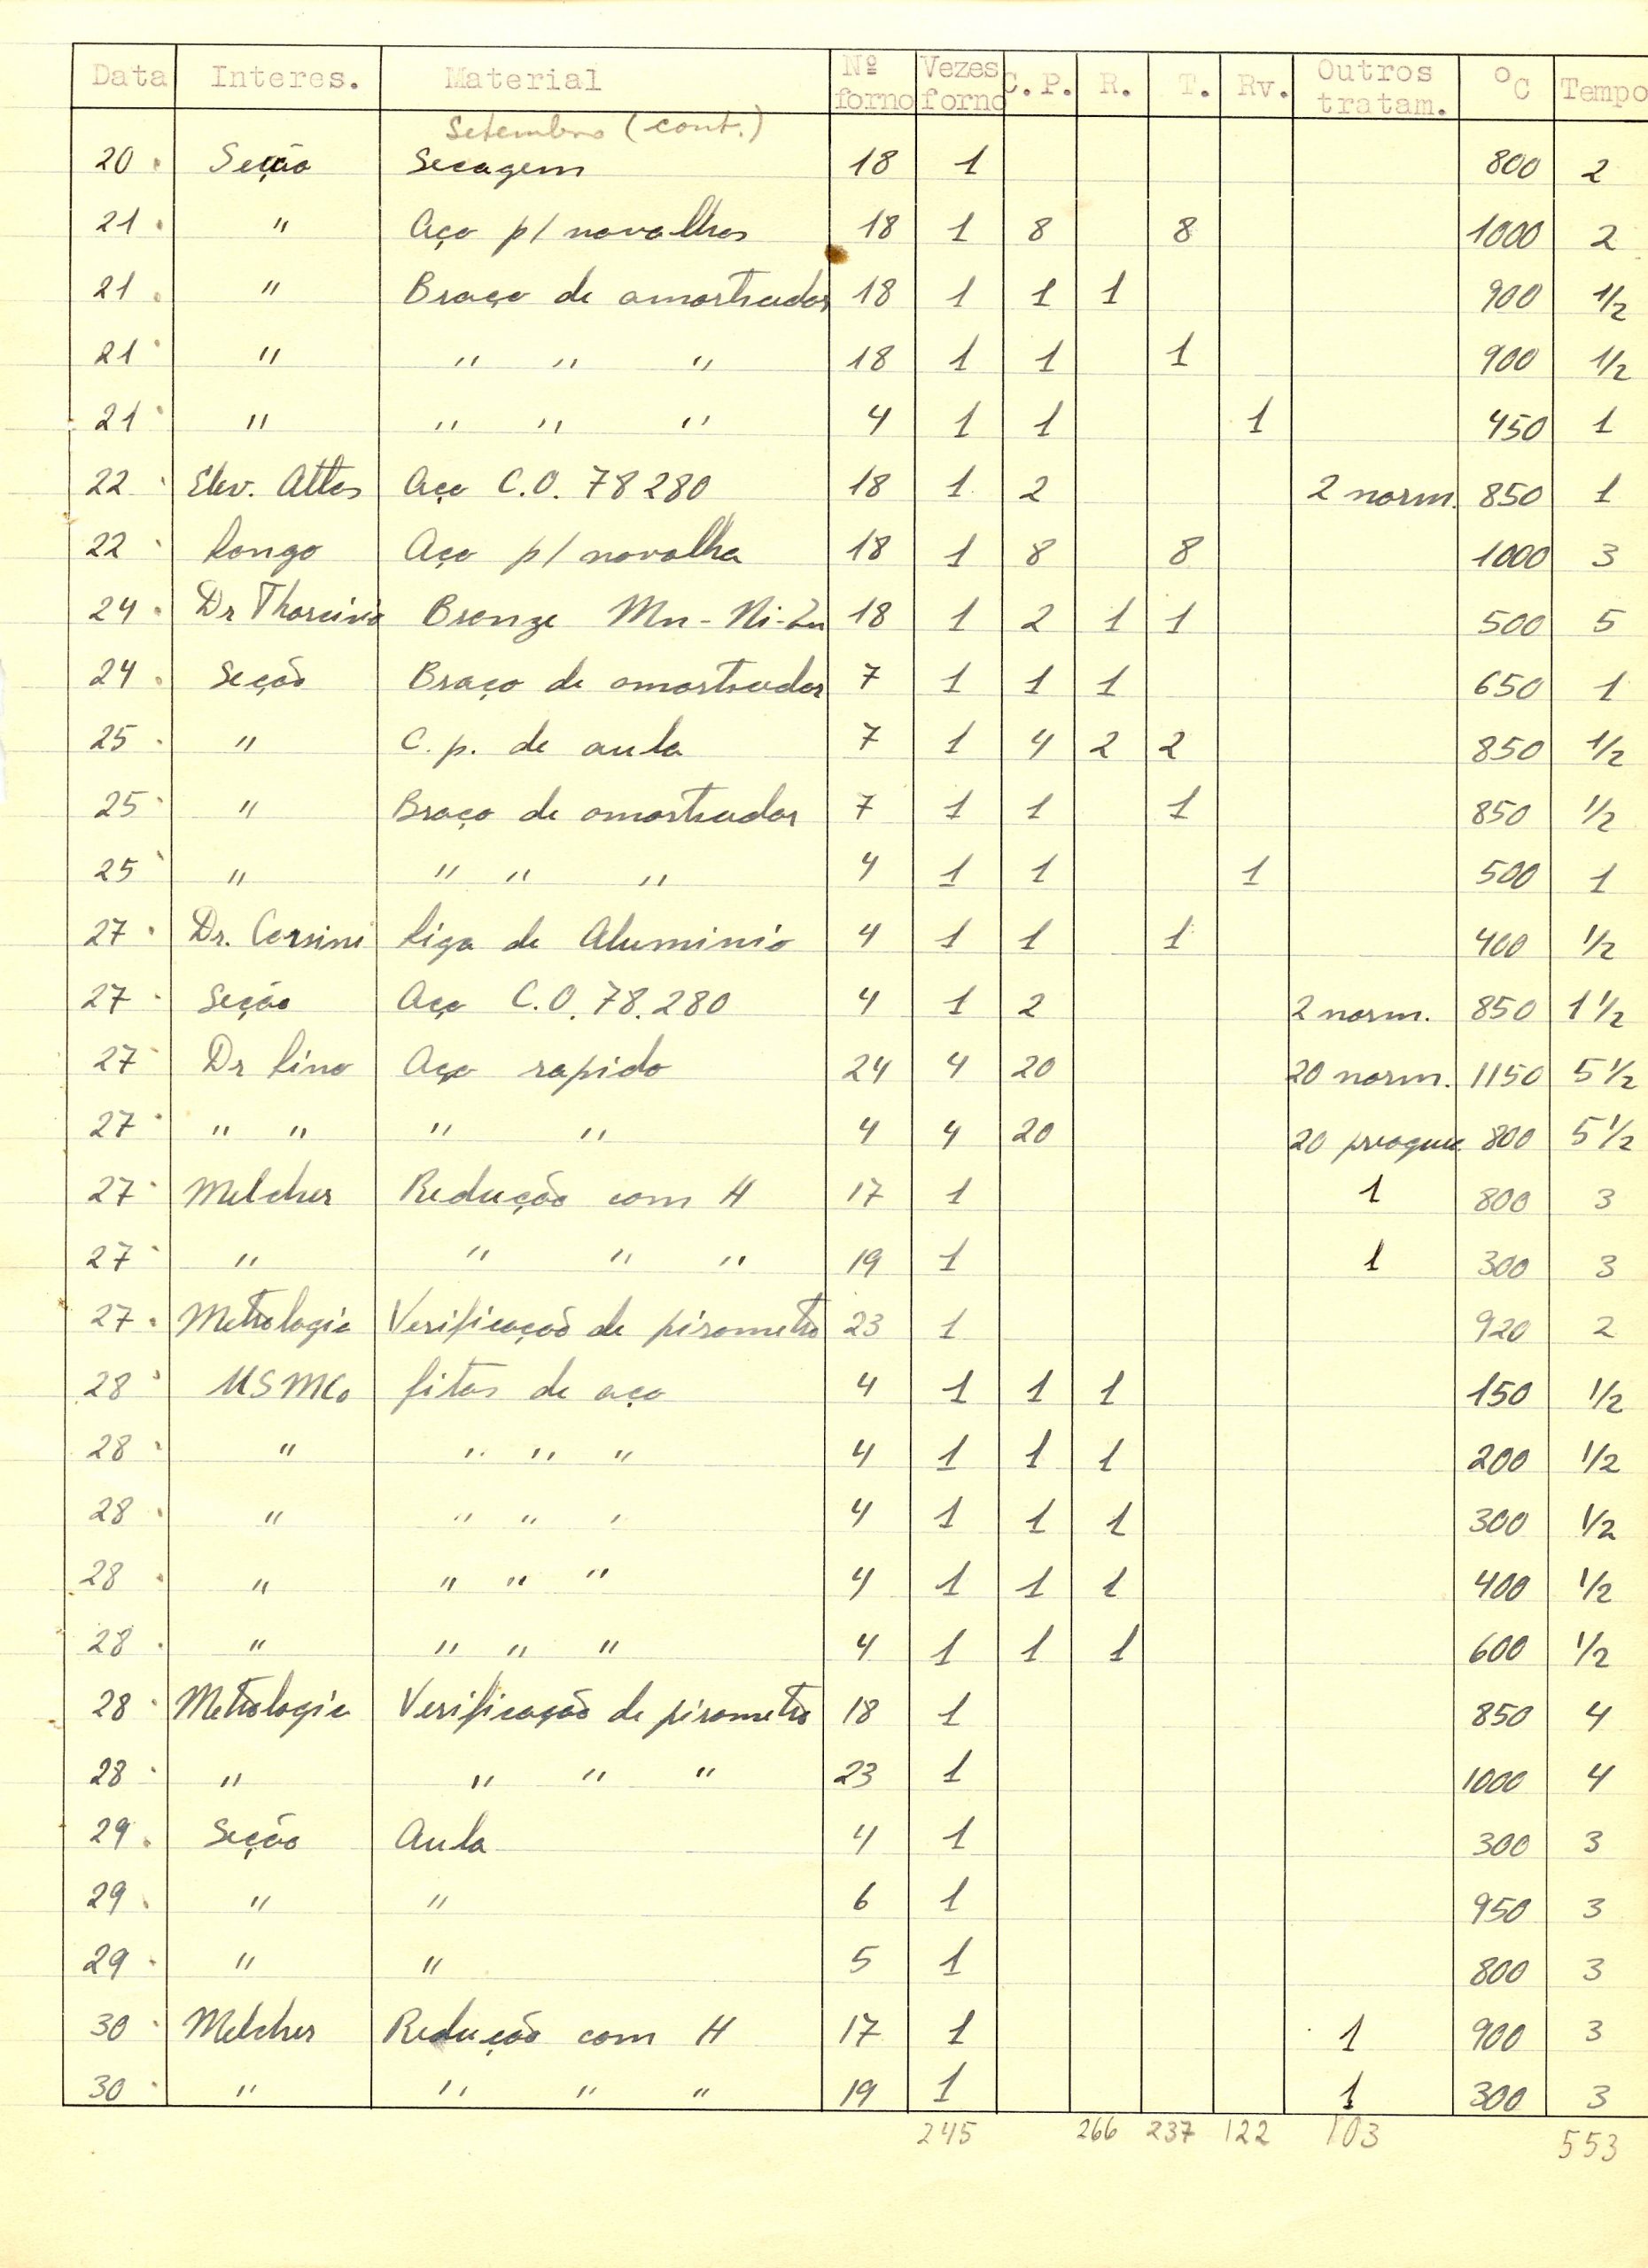 Data Interes. Material Nº forno Vezes forno C.P. R. T. Rv. Outros tratam. ºC Tempo
Setembro (cont.)
20 Seção Secagem 18 1 800 2
21 " Aço p/ navalhas 18 1 8 8 1000 2
21 " Braço de amostrador 18 1 1 1 900 1/2
21 " " " " 18 1 1 1 900 1/2
21 " " " " 4 1 1 1 450 1
22 Elev. Atlas Aço C.O. 78280 18 1 2 2 norm. 850 1
22 Longo Aço p/ navalha 18 1 8 8 1000 3
24 Dr Bronze Mn-Ni-Zn 18 1 2 1 1 500 5
24 Seção Braço de amostrador 7 1 1 1 650 1
25 " C.p. de aula 7 1 4 2 2 850 1/2
25 " Braço de amostrador 7 1 1 1 850 1/2
25 " " " " 4 1 1 1 500 1
27 Dr. Corsini Liga de Aluminio 4 1 1 1 400 1/2
27 Seção Aço C.O. 78.280 4 1 2 2 norm. 850 1 1/2
27 Dr Lino Aço rapido 24 4 20 20 norm. 1150 5 1/2
27 " " " " 4 4 20 20 preaquec. 800 5 1/2
27 Melcher Redução com H 17 1 1 800 3
27 " " " " 19 1 1 300 3
27 Metrologia Verificação de pirometro 23 1 920 2
28 USMCo fitas de aço 4 1 1 1 150 1/2
28 " " " " 4 1 1 1 200 1/2
28 " " " " 4 1 1 1 300 1/2
28 " " " " 4 1 1 1 400 1/2
28 " " " " 4 1 1 1 600 1/2
28 Metrologia Verificação de pirometro 18 1 850 4
28 " " " " 23 1 1000 4
29 Seção Aula 4 1 300 3
29 " " 6 1 950 3
29 " " 5 1 800 3
30 Melcher Redução com H 17 1 1 900 3
30 " " " " 19 1 1 300 3
245 266 237 122 103 553